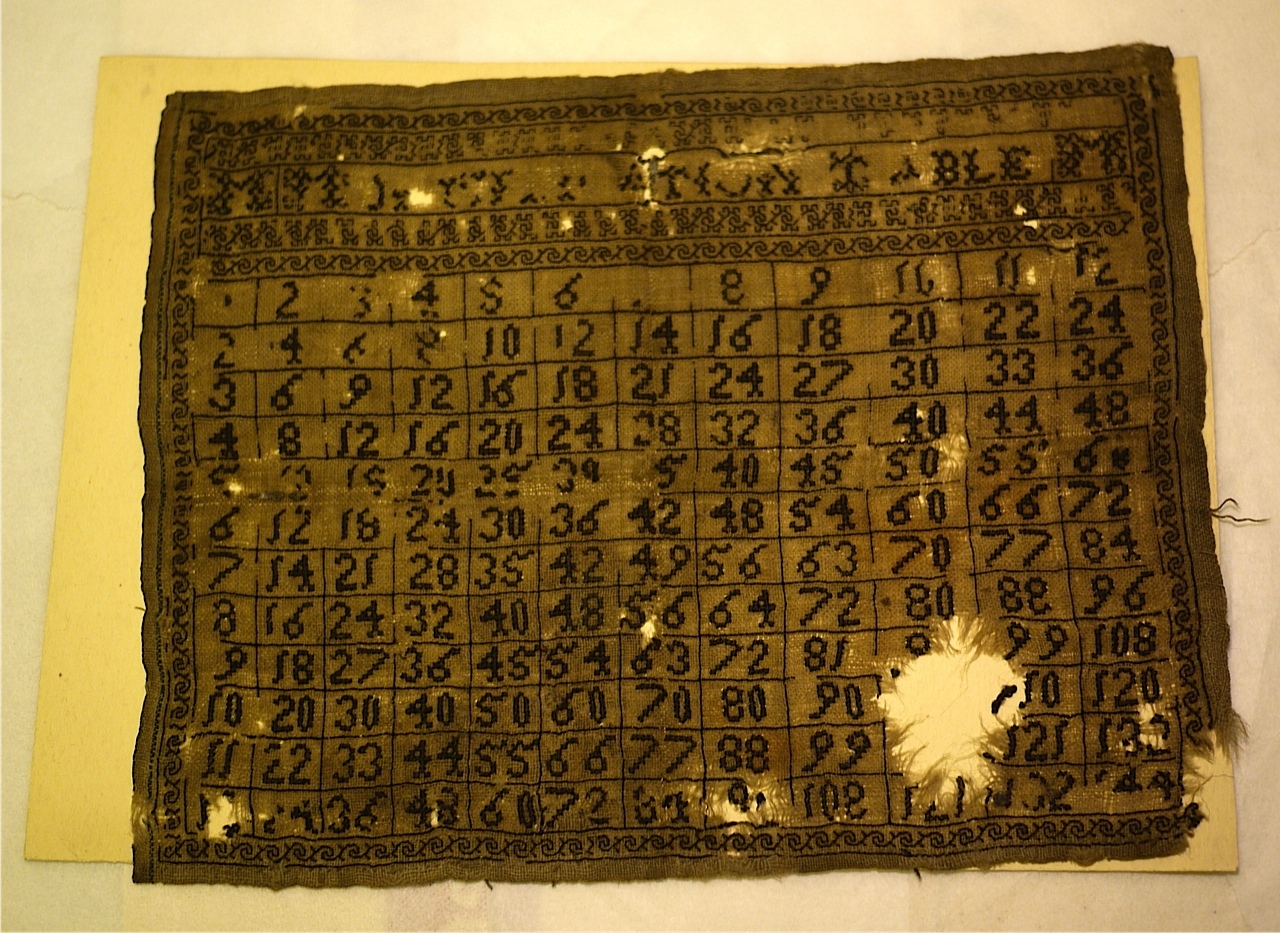 TABLE
2 3 4 5 6 8 9 10 11 12
2 4 6 8 10 12 14 16 18 20 22 24
3 6 9 12 16 18 21 24 27 30 33 36
4 8 12 16 20 24 28 32 36 40 44 48
15 20 25 30 40 45 50 55 60
6 12 18 24 30 36 42 48 54 60 66 72
7 14 21 28 35 42 49 56 63 70 77 84
8 16 24 32 40 48 56 64 72 80 88 96
9 18 27 36 45 54 63 72 81 99 108
10 20 30 40 50 60 70 80 90 120
11 22 33 44 55 66 77 88 99 121 132
36 48 60 72 84 108 132 144